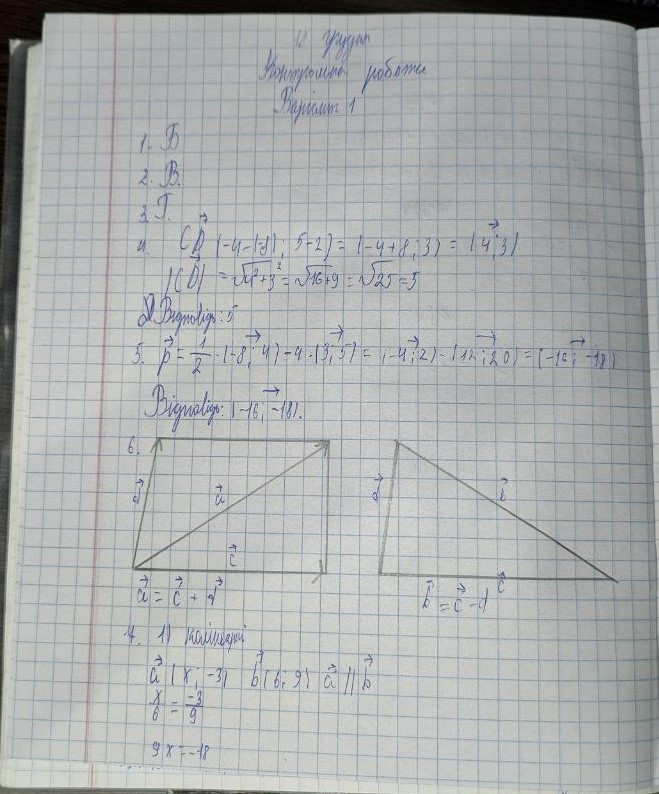 12 грудня
Контрольна робота
Варіант 1
1. Б
2. В.
3. Г.
4. CD⃗ (-4-(-8); 5-2) = (-4+8; 3) = (4; 3)
|CD⃗| = √4²+3² = √16+9 = √25 = 5
Відповідь: 5
5. p⃗ = 1/2 · (-8; 4) - 4 · (3; 5) = (-4; 2) - (12; 20) = (-16; -18)
Відповідь: (-16; -18).
6.
d⃗ a⃗ c⃗
d⃗ b⃗ c⃗
a⃗ = c⃗ + d⃗
b⃗ = c⃗ - d⃗
7. 1) колінеарні
a⃗ (x; -3) b⃗ (6; 9) a⃗ || b⃗
x/6 = -3/9
9x = -18